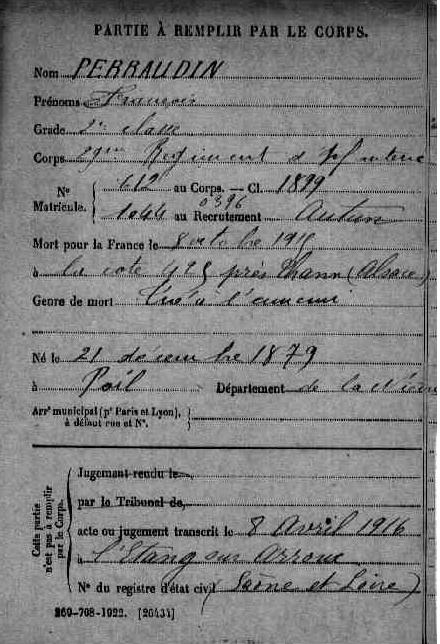 PARTIE À REMPLIR PAR LE CORPS.
Nom PERRAUDIN
Prénoms François
Grade 2e classe
Corps 29me Régiment d'Infanterie
N° 612 au Corps. — Cl. 1899
0396
Matricule. 1044 au Recrutement Autun
Mort pour la France le 8 octobre 1915
à la cote 425 près Thann (Alsace)
Genre de mort Tué à l'ennemi
Né le 21 décembre 1879
à Poil Département de la Nièv
Arrt municipal (pr Paris et Lyon),
à défaut rue et N°.
Cette partie
n'est pas à remplir
par le Corps.
Jugement rendu le
par le Tribunal de
acte ou jugement transcrit le 8 Avril 1916
à l'Etang sur Arroux
N° du registre d'état civil (Saone et Loire)
269-708-1922. [26434]